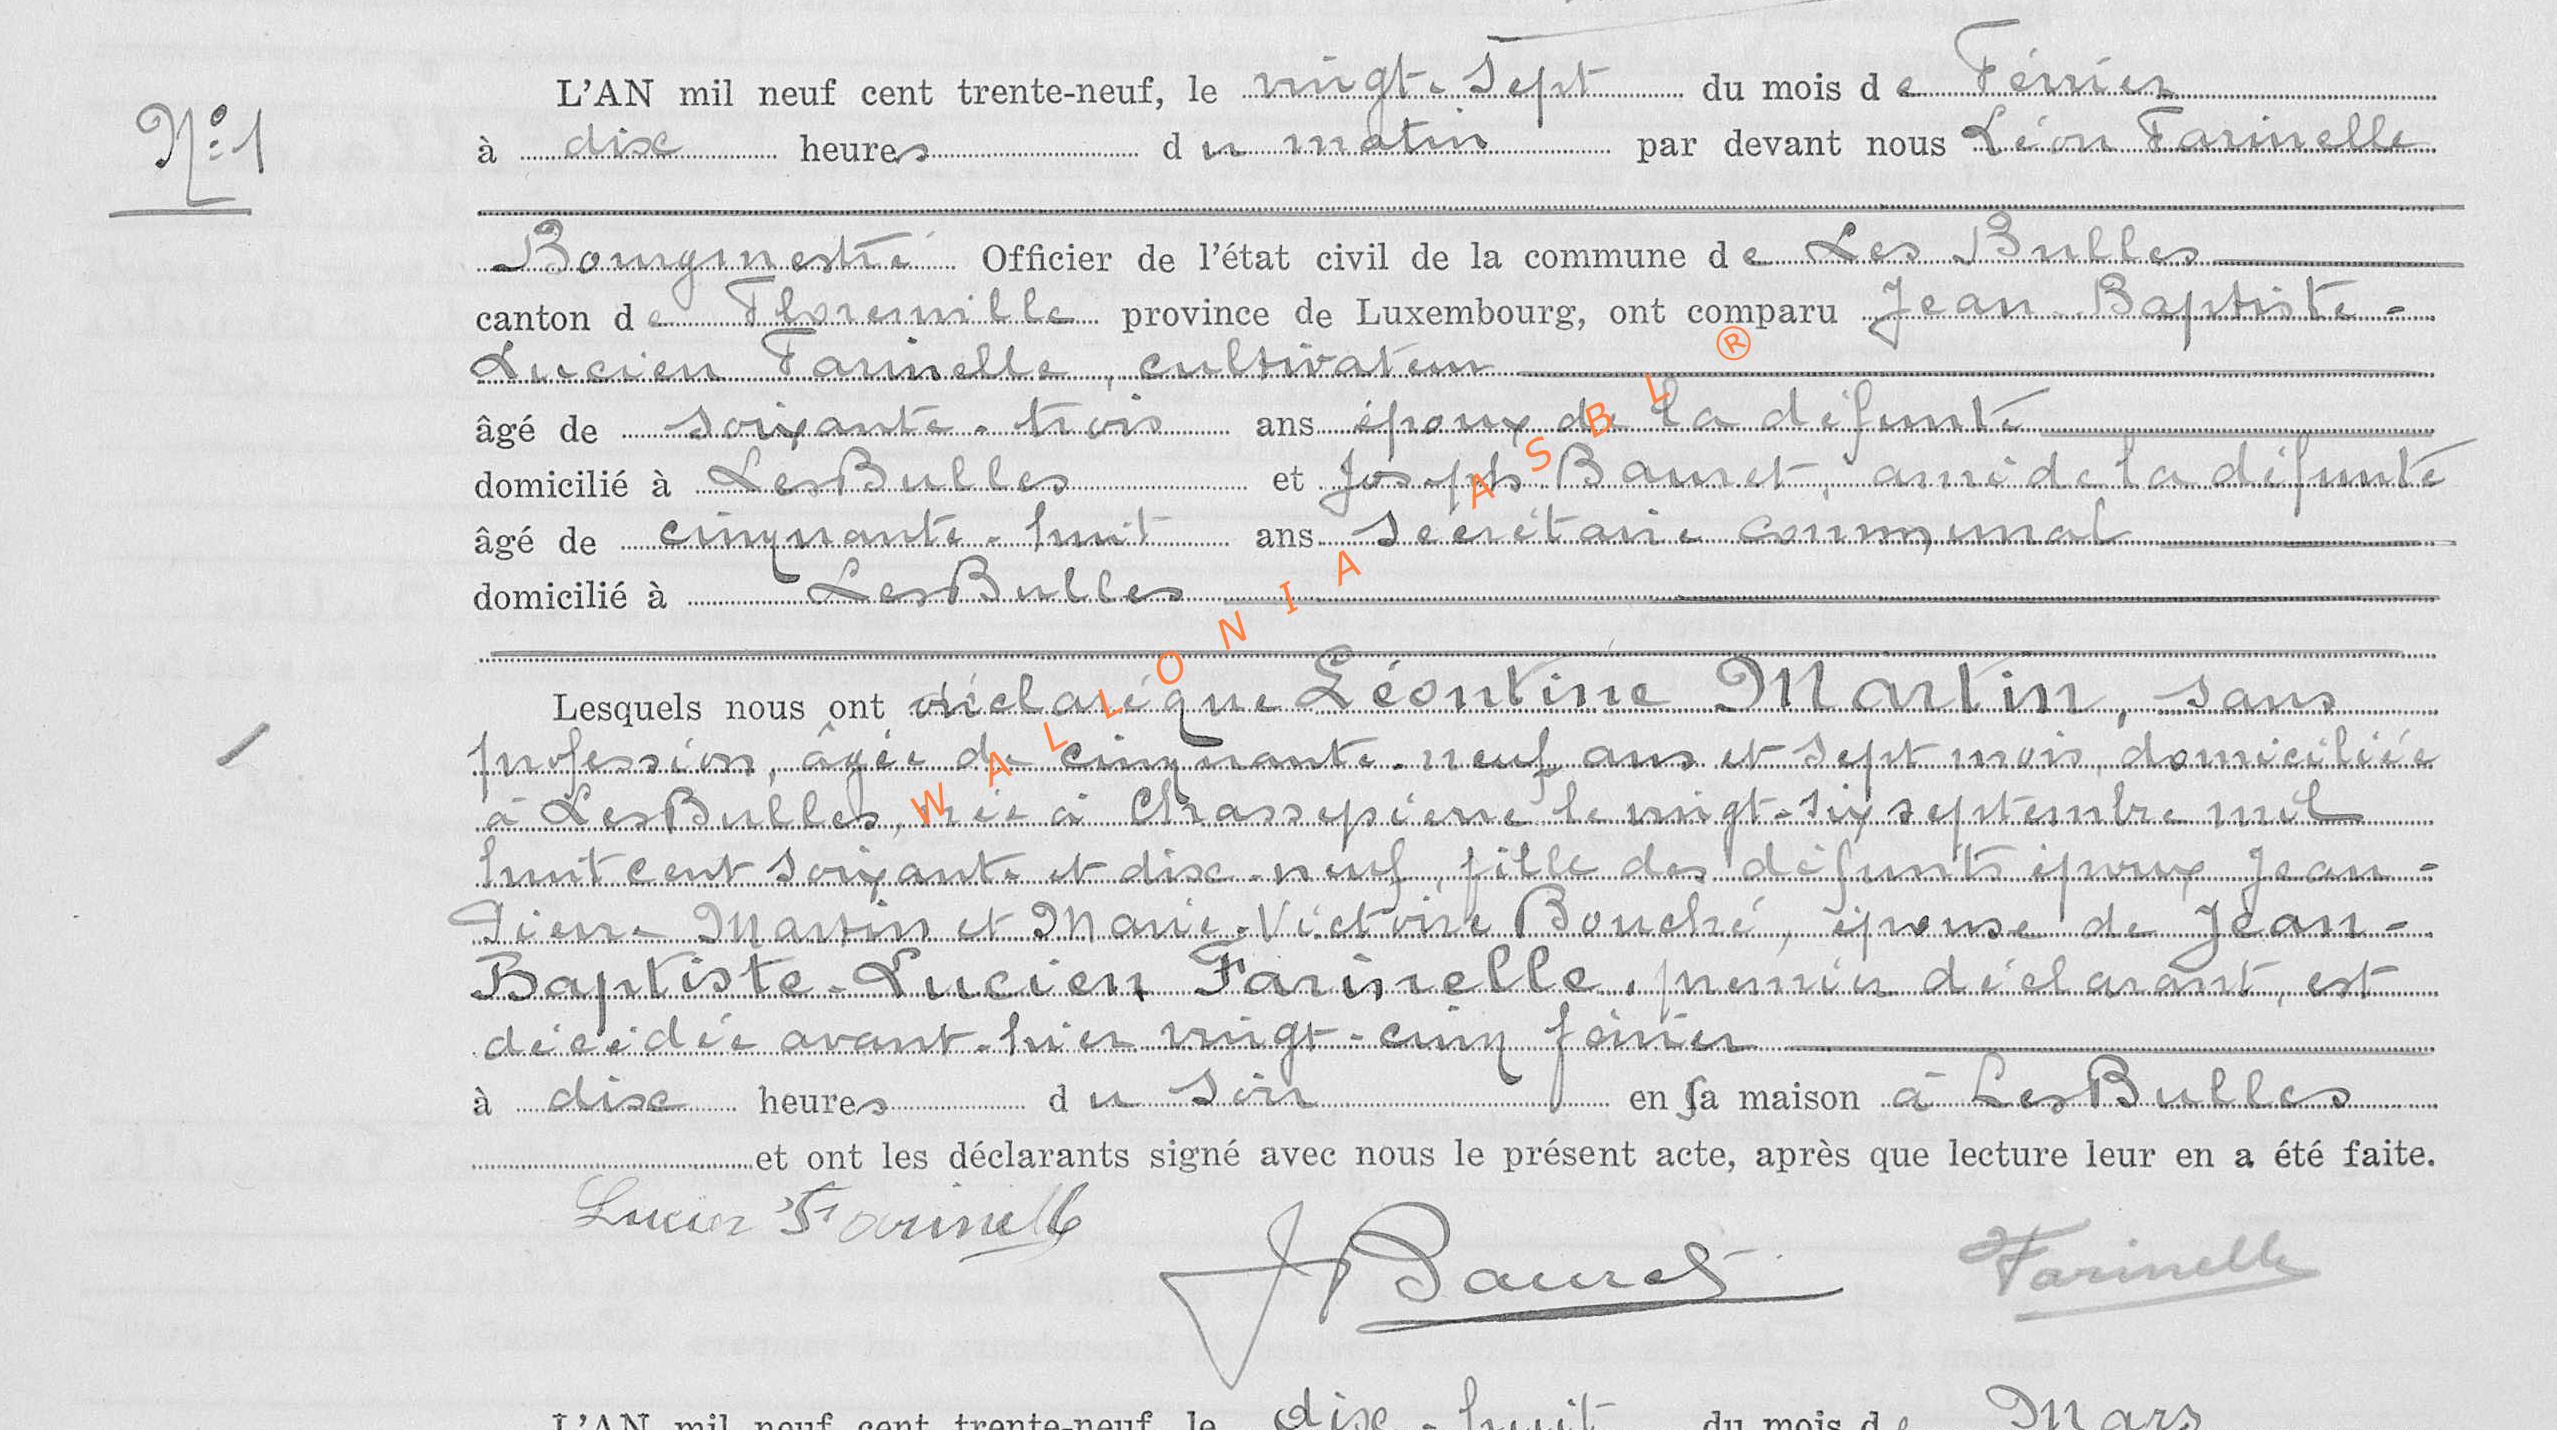 L'AN mil neuf cent trente-neuf, le vingt-sept du mois de Février
N° 1
à dix heures du matin par devant nous Léon Farinelle
Bourgmestre Officier de l'état civil de la commune de Les Bulles
canton de Florenville province de Luxembourg, ont comparu Jean-Baptiste-
Lucien Farinelle, cultivateur
âgé de soixante-trois ans époux de la défunte
domicilié à Les Bulles et Joseph Bauret, ami de la défunte
âgé de cinquante-huit ans secrétaire communal
domicilié à Les Bulles
Lesquels nous ont déclaré que Léontine Martin, sans
profession, âgée de cinquante-neuf ans et sept mois, domiciliée
à Les Bulles, née à Chassepierre le vingt-six septembre mil
huit cent soixante et dix-neuf, fille des défunts époux Jean-
Pierre Martin et Marie-Victoire Bouché, épouse de Jean-
Baptiste-Lucien Farinelle, premier déclarant, est
décédée avant-hier vingt-cinq février
à dix heures du soir en sa maison à Les Bulles
et ont les déclarants signé avec nous le présent acte, après que lecture leur en a été faite.
Lucien Farinelle
J Bauret
Farinelle
L'AN mil neuf cent trente-neuf, le dix-huit du mois de Mars
WALLONIA ASBL ®